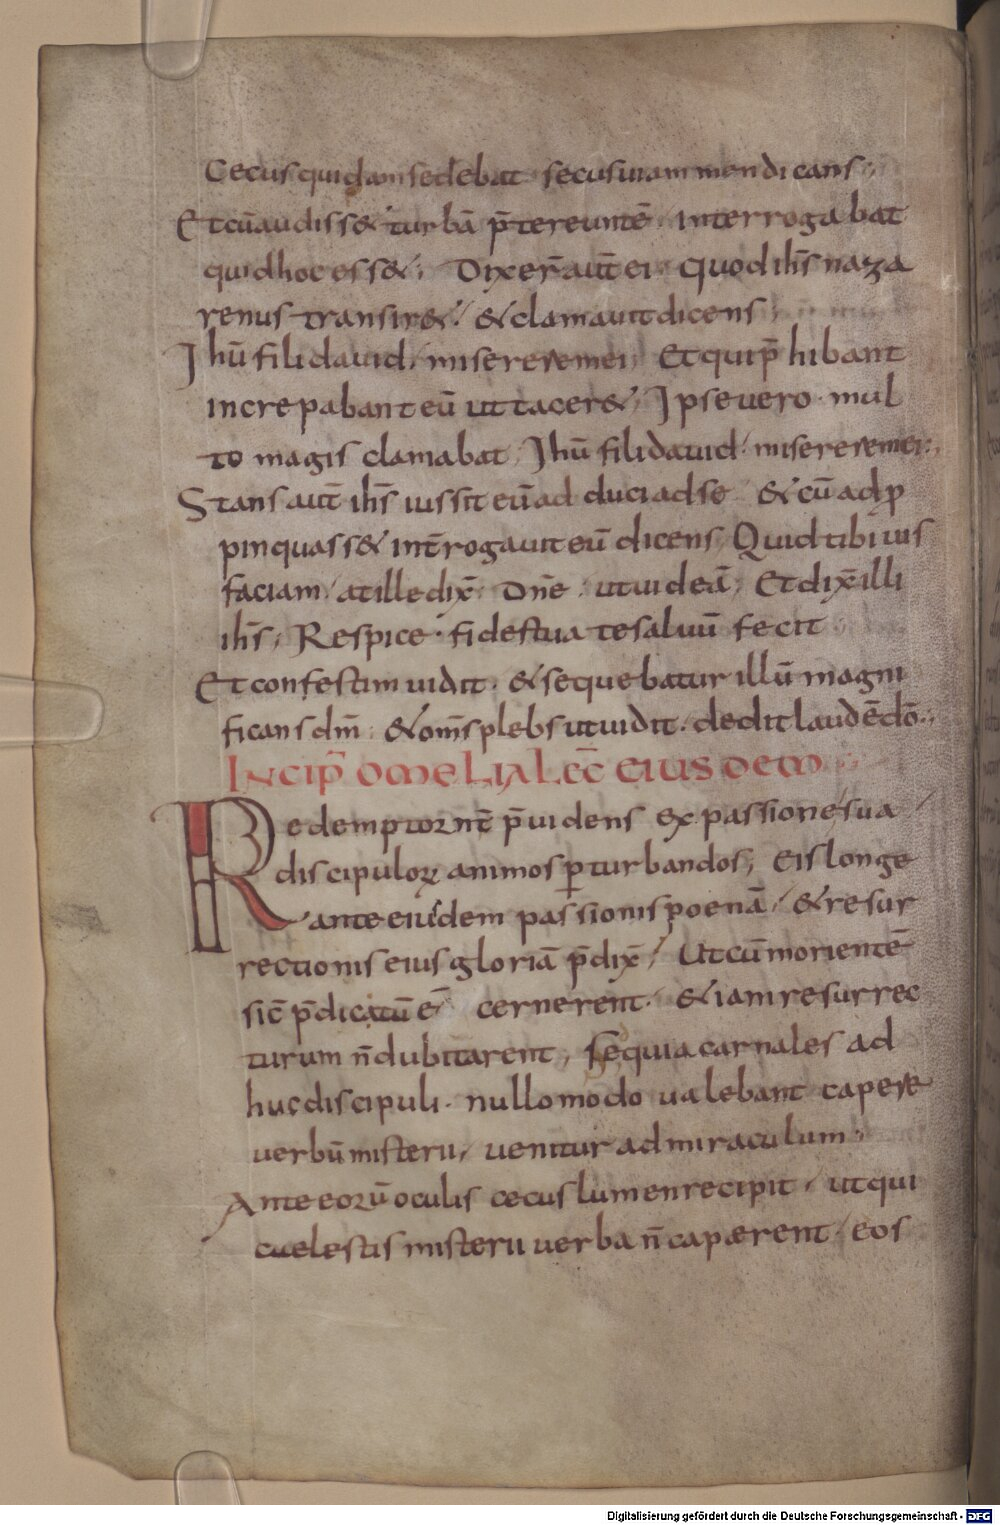 Cecus quidam sedebat secus uiam mendicans·,
Et cū audiss& turbā p̄tereuntē interrogabat
quid hoc ess&; Dixer̄ aut̄ ei quod ih̄s naza
renus transir&; & clamauit dicens
Ihū fili dauid, miserere mei; Et qui p̄hibant
increpabant eū ut tacer&; Ipse uero mul
to magis clamabat, Ihū fili dauid, miserere mei·,
Stans aut̄ ih̄s iussit eū adduci ad se & cū adp̱
pinquass& int̄rogauit eū dicens, Quid tibi uis
faciam, at ille dix̄; Dn̄e, ut uideā; Et dix̄ illi
ih̄s, Respice· fides tua te saluū fecit
Et confestim uidit· & sequebatur illū magni
ficans dm̄ & om̄s plebs ut uidit· dedit laudē dō·,
INCIP̄ OMELIA LEC̄ EIUSDEM
Redemptor nr̄ p̄uidens ex passione sua
discipuloꝝ animos ꝑturbandos, eis longe
ante eiusdem passionis poenā, & resur
rectionis eius gloriā p̄dix̄, Ut cū morientē
sic̄ p̄dicatū ē cernerent· & iam resurrec
turum n̄ dubitarent, Sed quia carnales ad
huc discipuli· nullo modo ualebant capere
uerbū misterii, uenitur ad miraculum,
Ante eorū oculis cecus lumen recipit, ut qui
caelestis misterii uerba n̄ capærent, eos
Digitalisierung gefördert durch die Deutsche Forschungsgemeinschaft - DFG